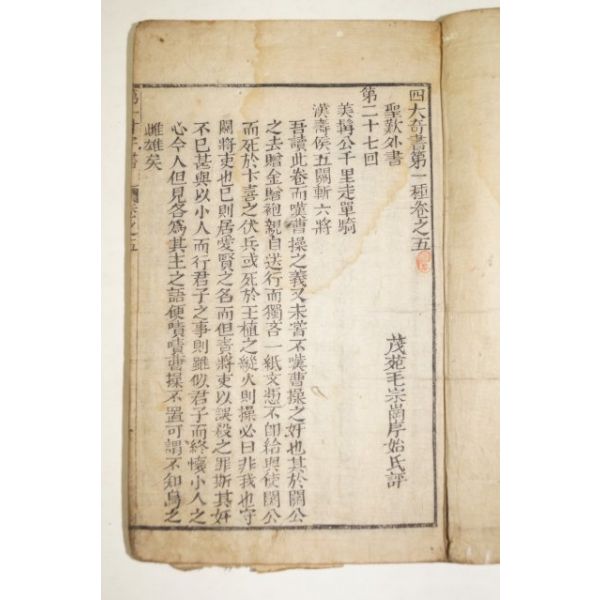 四大奇書第一種卷之五
聖歎外書
茂苑毛宗崗序始氏評
第二十七回
美髯公千里走單騎
漢壽侯五關斬六將
吾讀此卷而嘆曹操之義又未嘗不嘆曹操之奸也其於關公
之去贈金贈袍親自送行而獨吝一紙文憑不卽給與使關公
而死於卞喜之伏兵或死於王植之縱火則操必曰非我也守
關將吏也已則居愛賢之名而但責將吏以誤殺之罪斯其奸
不已甚與以小人而行君子之事則雖似君子而終懷小人之
心今人但見各爲其主之語便嘖嘖曹操不置可謂不知烏之
雌雄矣
第一才子書
卷之五